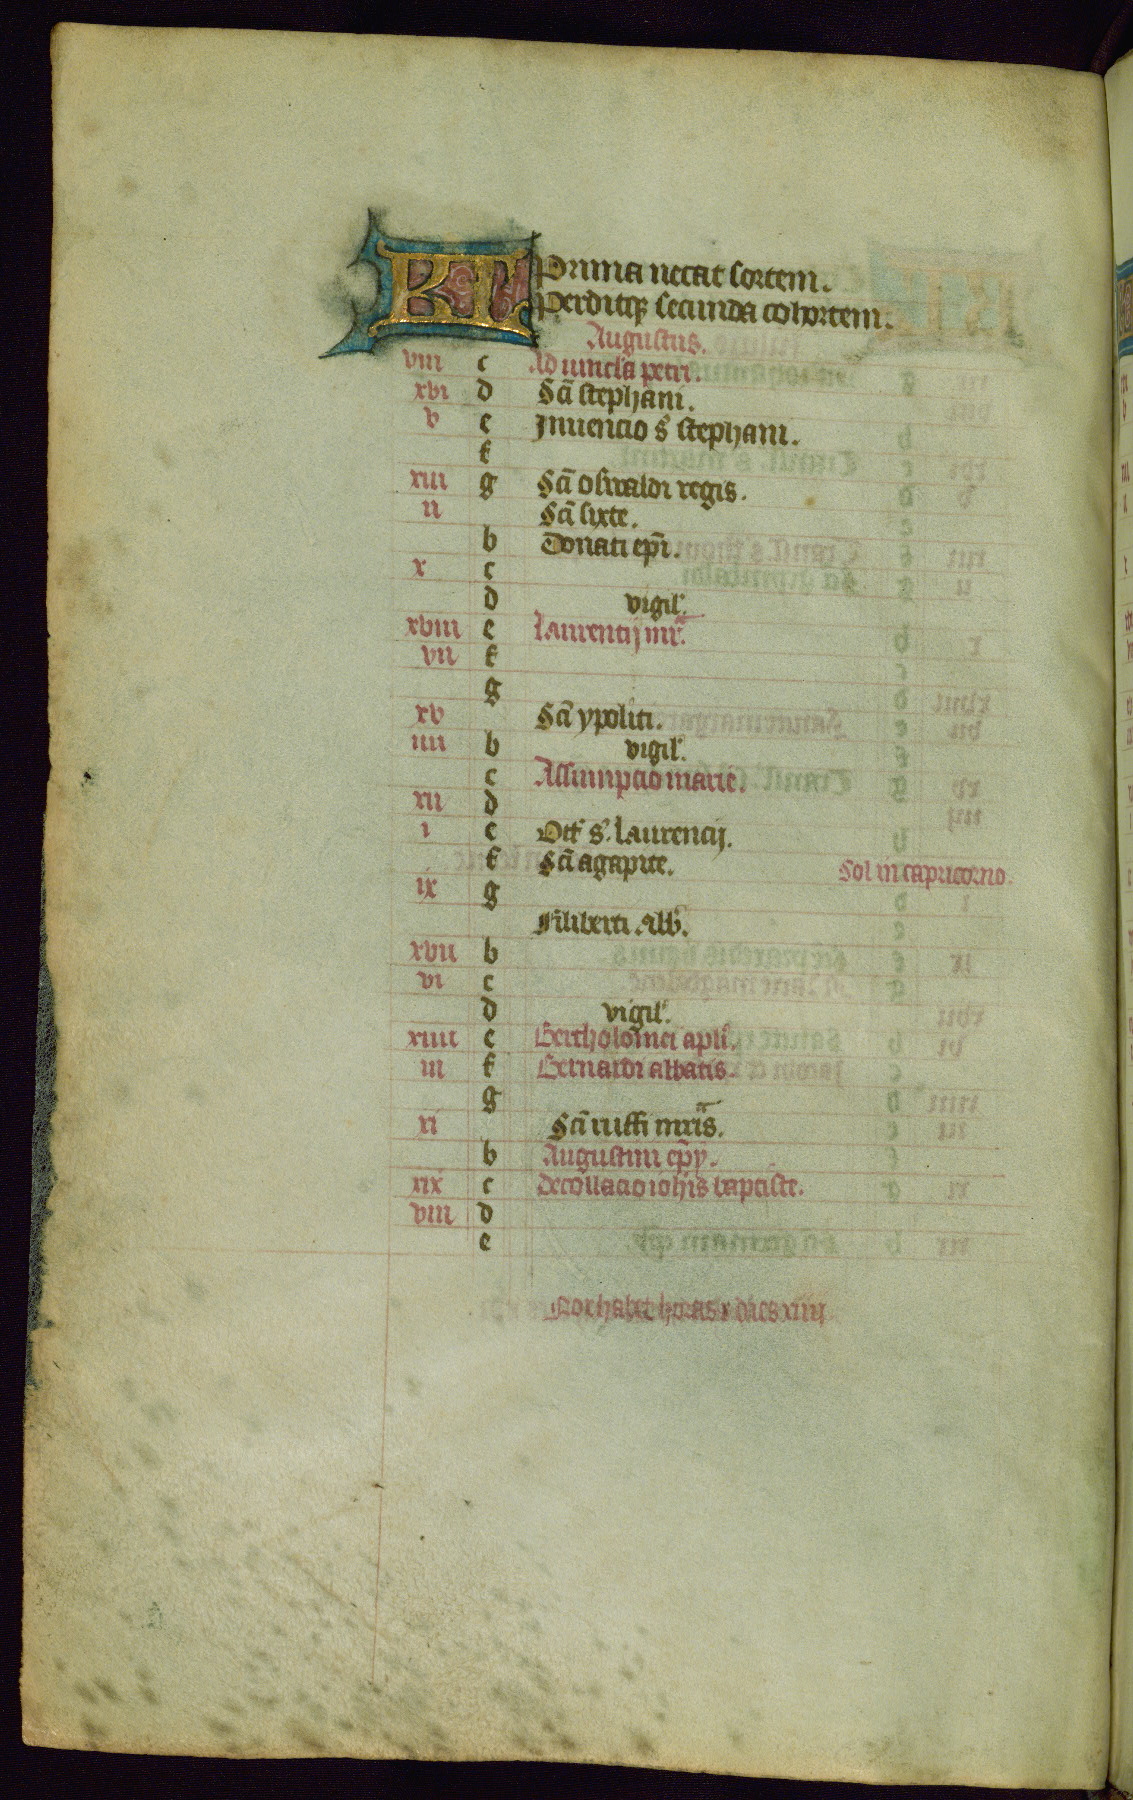 KL Prima necat fortem.
Perditq; secunda cohortem.
Augustus.
viii c Ad uincla petri.
xvi d Scī stephani.
v e Inuencio s stephani.
f
xiii g Scī oswaldi regis.
ii Scī sixte.
b Donati epī.
x c
d vigil'.
xviii e Laurencij mr̄.
vii f
g
xv Scī ypoliti.
iiii b vigil'.
c Assumpcio marie.
xii d
i e Oct' s'. laurencij.
f Scī agapite. Sol in capricorno.
ix g
Filiberti abb'.
xvii b
vi c
d vigil'.
xiiii e Bertholomei apli'.
iii f Bernardi abbatis.
g
xi Scī ruffi mr̄is.
b Augustini epȳ.
xix c decollacio ioh̄is baptiste.
viii d
e
Nox habet horas x dies xiiij